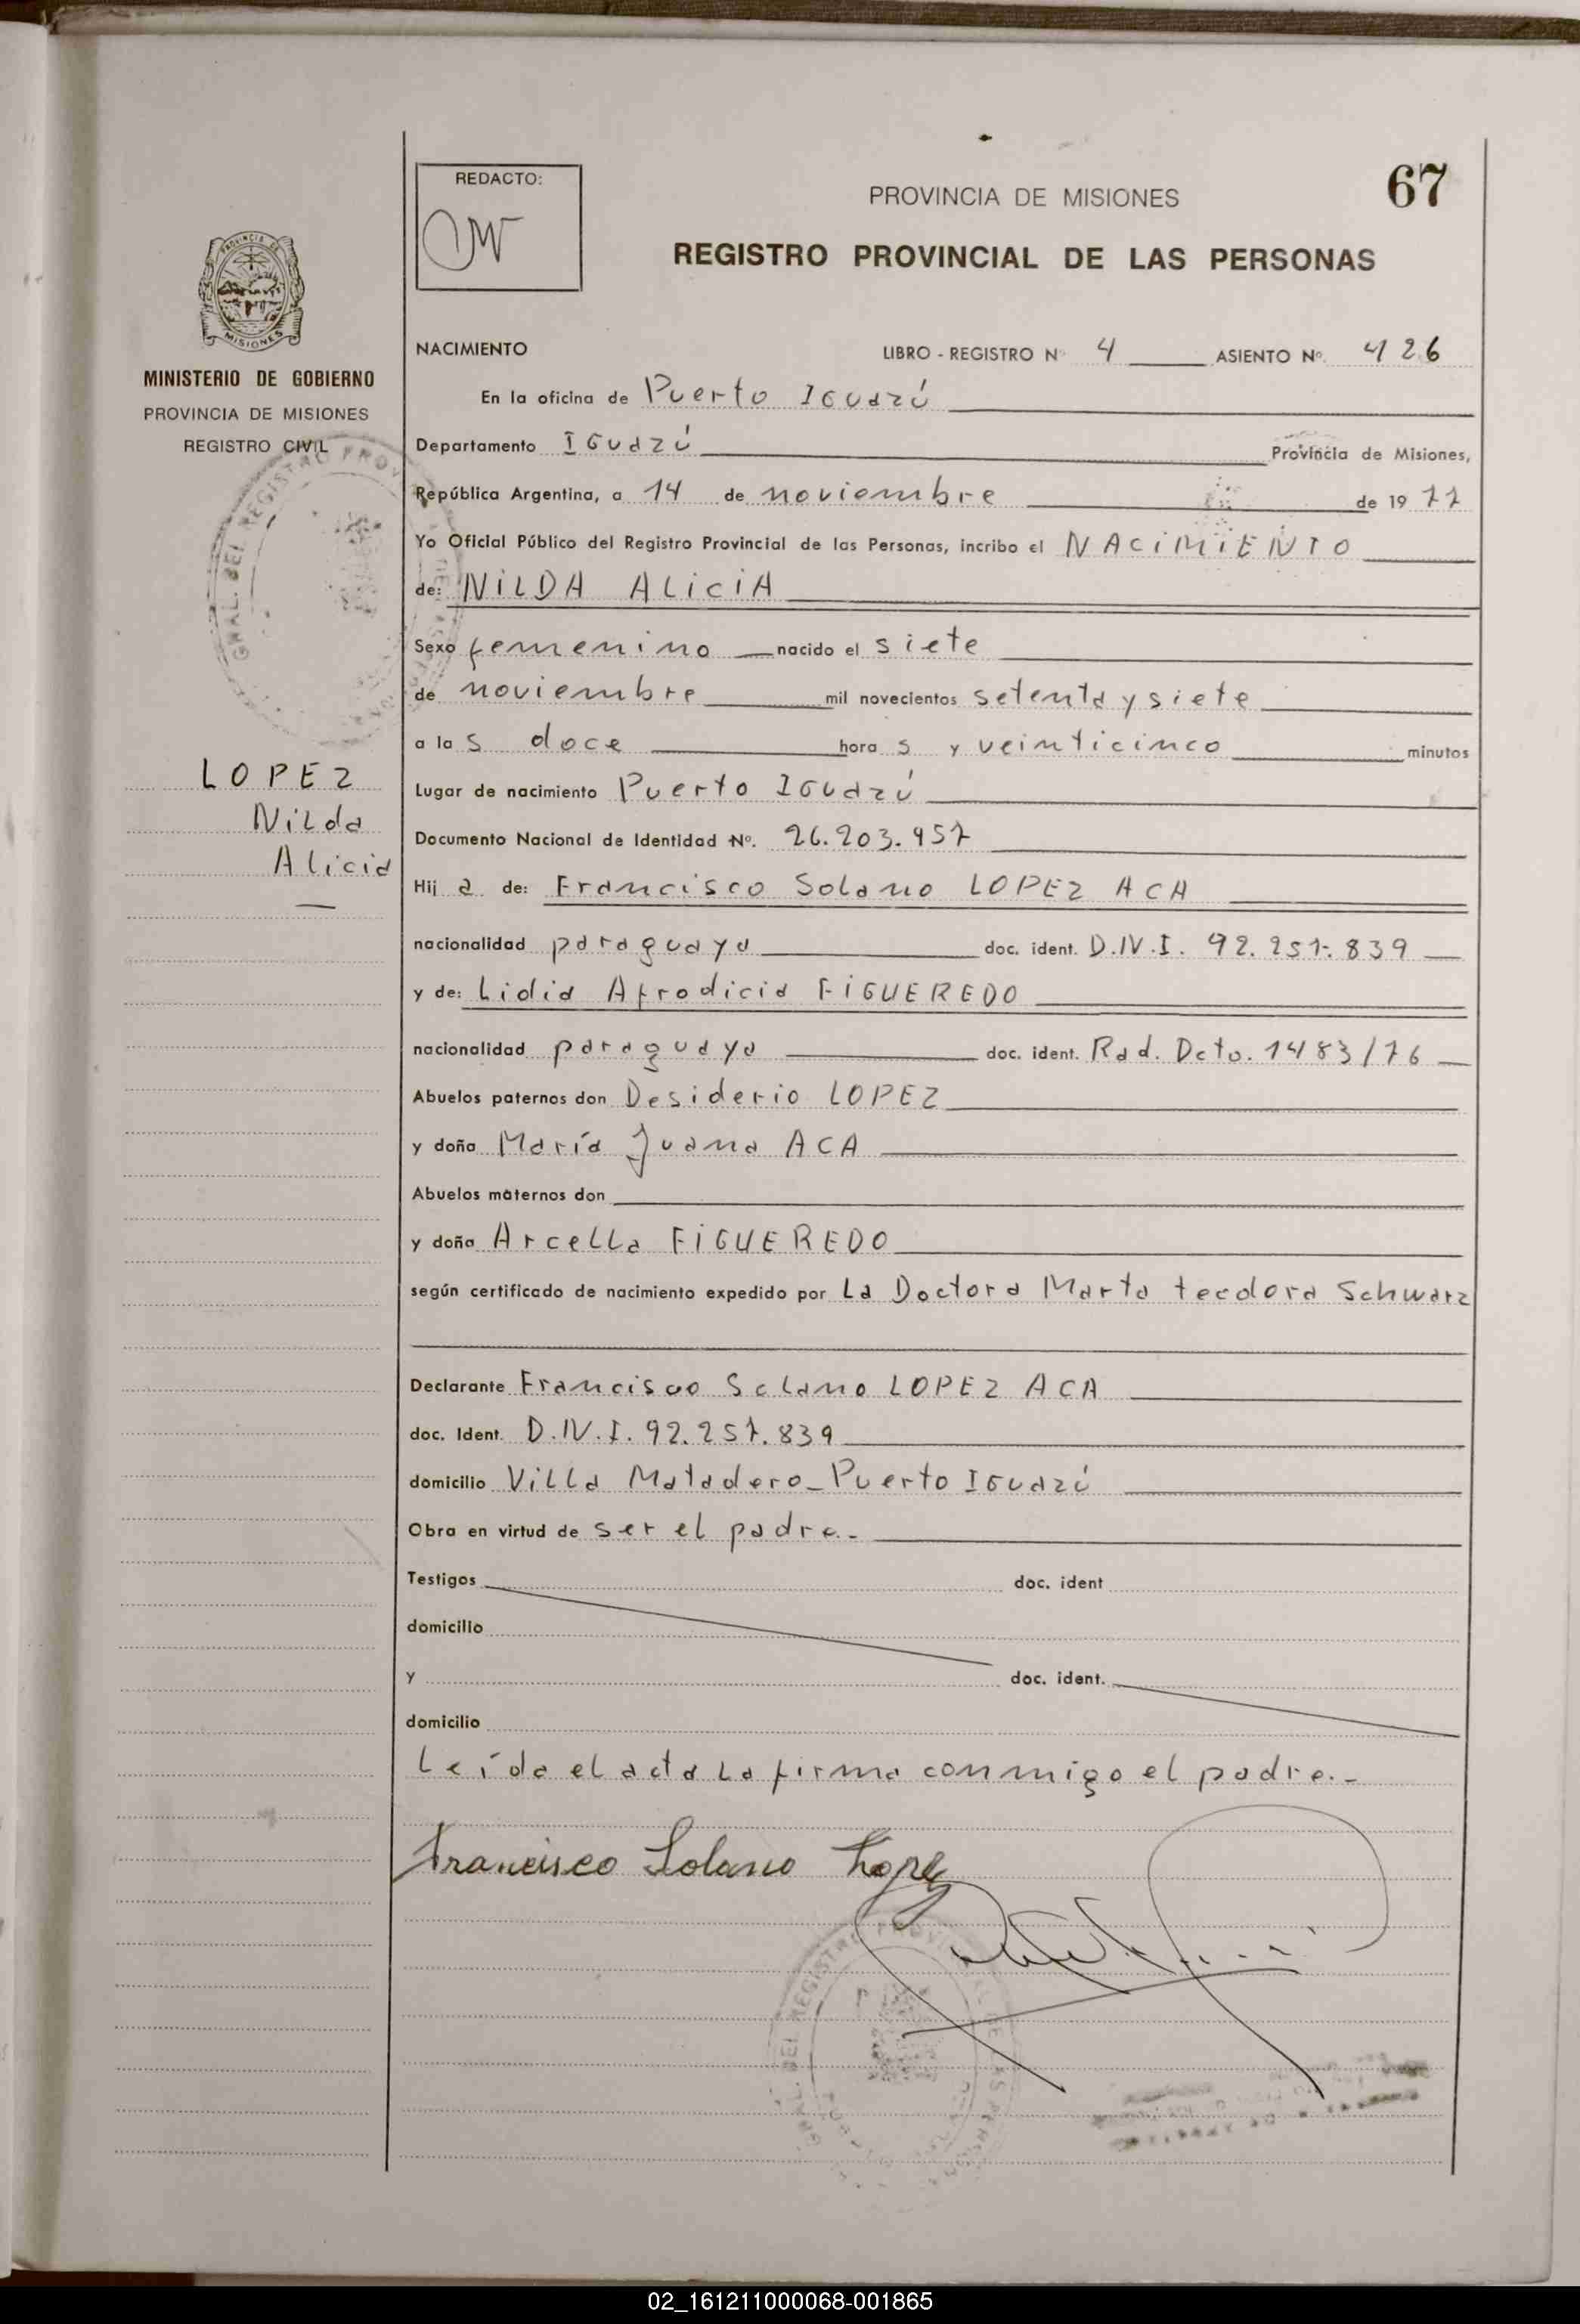 67
REDACTO:
PROVINCIA DE MISIONES
REGISTRO PROVINCIAL DE LAS PERSONAS
MINISTERIO DE GOBIERNO
PROVINCIA DE MISIONES
REGISTRO CIVIL
LOPEZ
Nilda
Alicia
NACIMIENTO LIBRO - REGISTRO Nº 4 ASIENTO Nº. 426
En la oficina de Puerto IGUazú
Departamento IGUazú Provincia de Misiones,
República Argentina, a 14 de noviembre de 19 77
Yo Oficial Público del Registro Provincial de las Personas, incribo el NACiMiENTO
de: NiLDA ALiCiA
Sexo femenino nacido el siete
de noviembre mil novecientos setenta y siete
a la s doce hora s y veinticinco minutos
Lugar de nacimiento Puerto IGUazú
Documento Nacional de Identidad Nº. 26.203.957
Hij a de: Francisco Solano LOPEZ ACA
nacionalidad paraguaya doc. ident. D.N.I. 92.257.839
y de: Lidia Afrodicia FiGUEREDO
nacionalidad paraguaya doc. ident. Rad. Dcto. 1483/76
Abuelos paternos don Desiderio LOPEZ
y doña María Juana ACA
Abuelos maternos don
y doña Arcella FiGUEREDO
según certificado de nacimiento expedido por La Doctora Marta teodora Schwarz
Declarante Francisco Solano LOPEZ ACA
doc. Ident. D.N.I. 92.257.839
domicilio Villa Matadero - Puerto IGUazú
Obra en virtud de ser el padre.-
Testigos doc. ident
domicilio
y doc. ident.
domicilio
Leída el acta La firma conmigo el padre.-
Francisco Solano Lopez
02_161211000068-001865